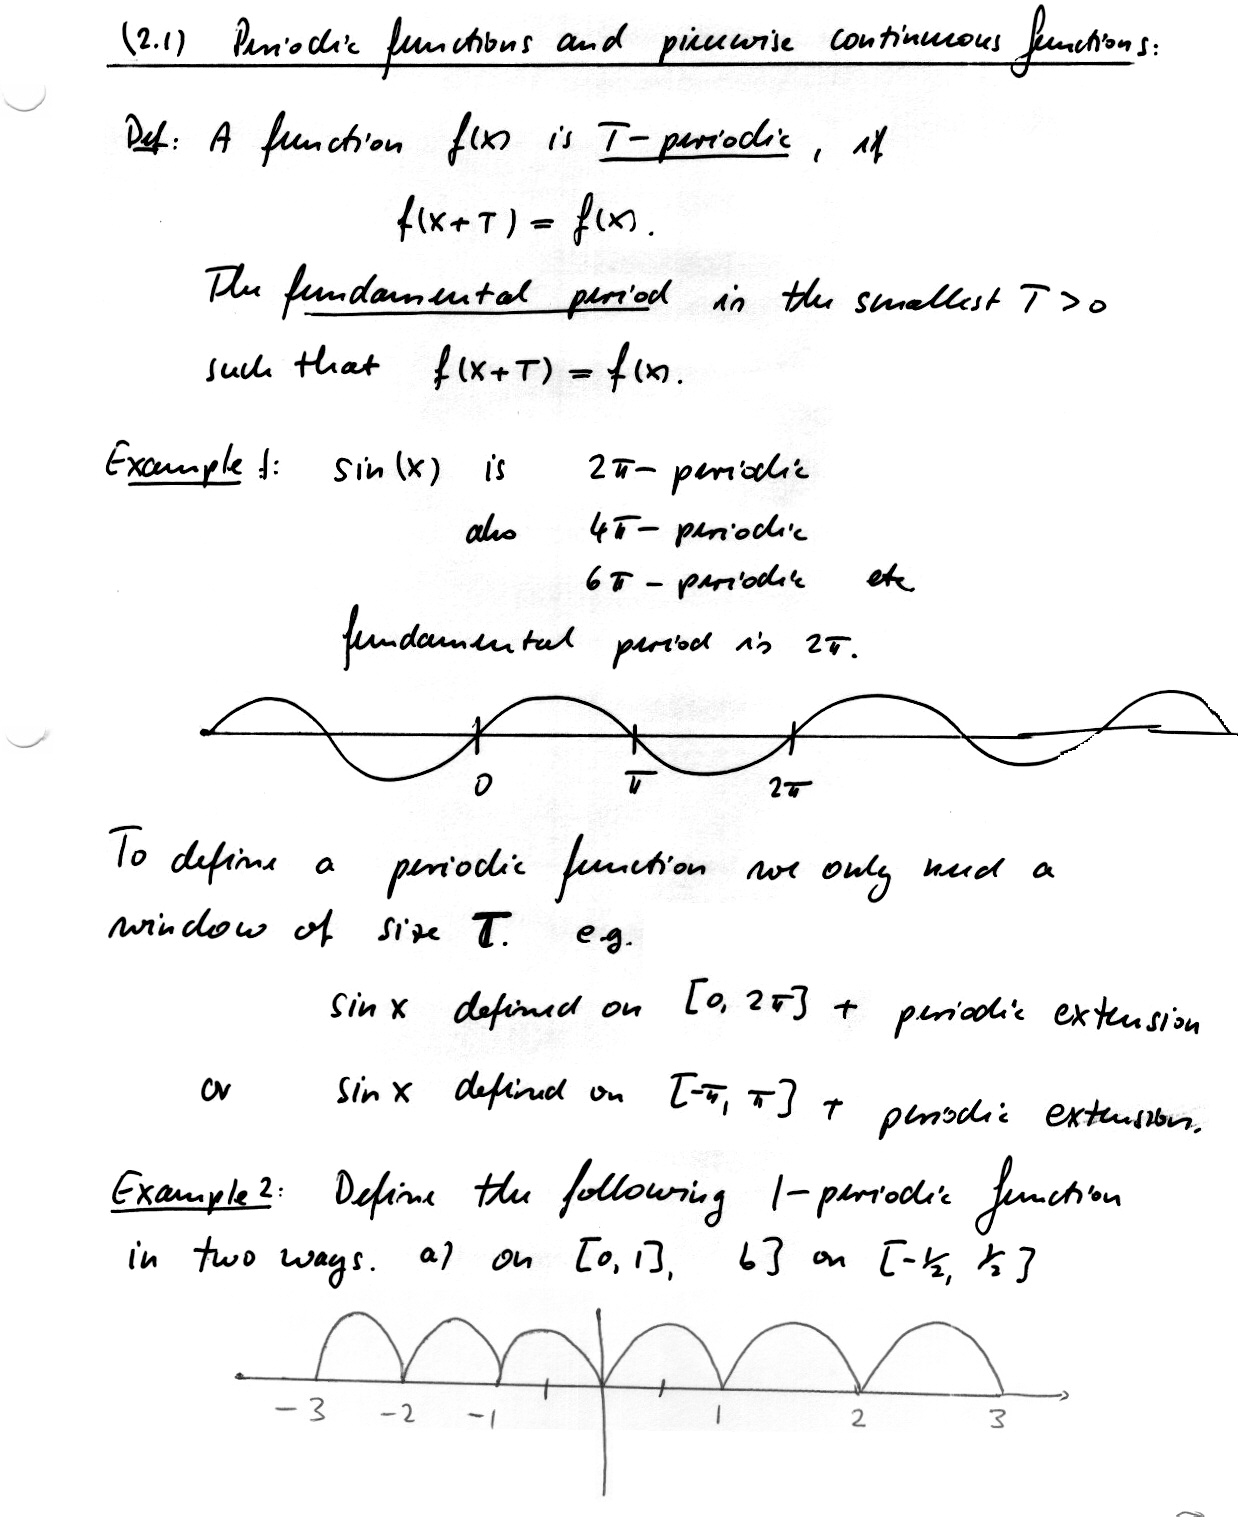 (2.1) Periodic functions and piecewise continuous functions:
Def: A function f(x) is T-periodic, if
f(x+T) = f(x).
The fundamental period is the smallest T>0
such that f(x+T) = f(x).
Example 1: sin(x) is 2π-periodic
also 4π-periodic
6π-periodic etc
fundamental period is 2π.
0 π 2π
To define a periodic function we only need a
window of size T. e.g.
sin x defined on [0, 2π] + periodic extension
or sin x defined on [-π, π] + periodic extension.
Example 2: Define the following 1-periodic function
in two ways. a) on [0,1], b] on [-1/2, 1/2]
-3 -2 -1 1 2 3